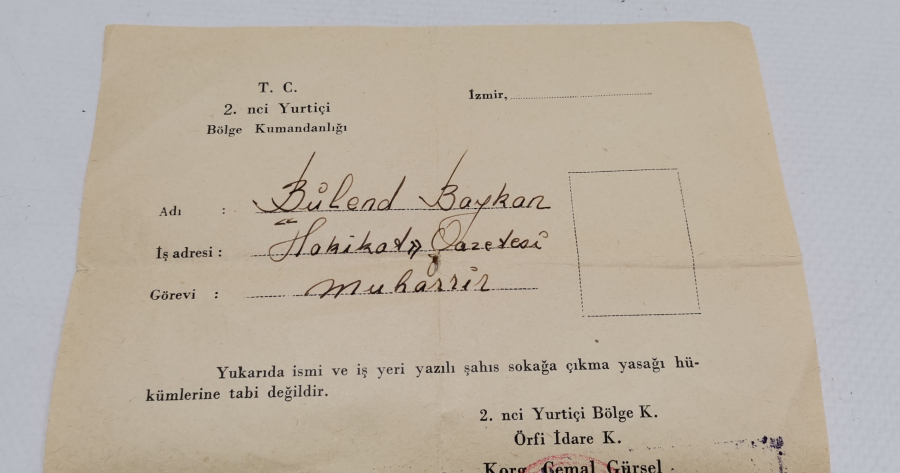 T. C.
2. nci Yurtiçi
Bölge Kumandanlığı
İzmir,
Adı : Bülend Baykan
İş adresi : "Hakikat" Gazetesi
Görevi : Muharrir
Yukarıda ismi ve iş yeri yazılı şahıs sokağa çıkma yasağı hü-
kümlerine tabi değildir.
2. nci Yurtiçi Bölge K.
Örfi İdare K.
Korg. Cemal Gürsel